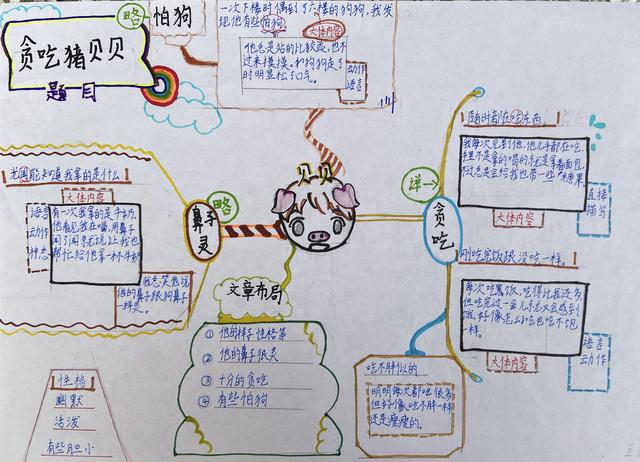 贪吃猪贝贝
题目
略
怕狗
一次下楼时偶到了六楼的狗狗,我发
现他有些怕狗
大体内容
他总是站的比较远,也不
过来摸摸。和狗狗走了
时明显松了口气。
动作
语言
贝贝
略
鼻子
灵
光闻能知道我拿的是什么
大体内容
语言
动作
神态
有一次我拿的是牛奶,
他看见我在喝,用鼻子
闻了闻
帮忙给他拿一杯牛奶
我总笑他说
他的鼻子跟狗鼻子
一样灵。
详
贪吃
随时都在吃东西
我每次见到他,他几乎都在吃,
手里不是拿的喝的就是拿着面包,
不过总是会给我也带一些
大体内容
直接
描写
刚吃完饭跟没吃一样。
每次吃完饭,吃得比我还多
但吃完过一会儿
饿,好像怎么吃也吃不饱
一样。
大体内容
语言
动作
吃不胖似的
明明每次都吃很多
但好像吃不胖一样
还是瘦瘦的。
文章布局
① 他的样子性格等
② 他的鼻子很灵
③ 十分的贪吃
④ 有些怕狗
性格
幽默
活泼
有些胆小